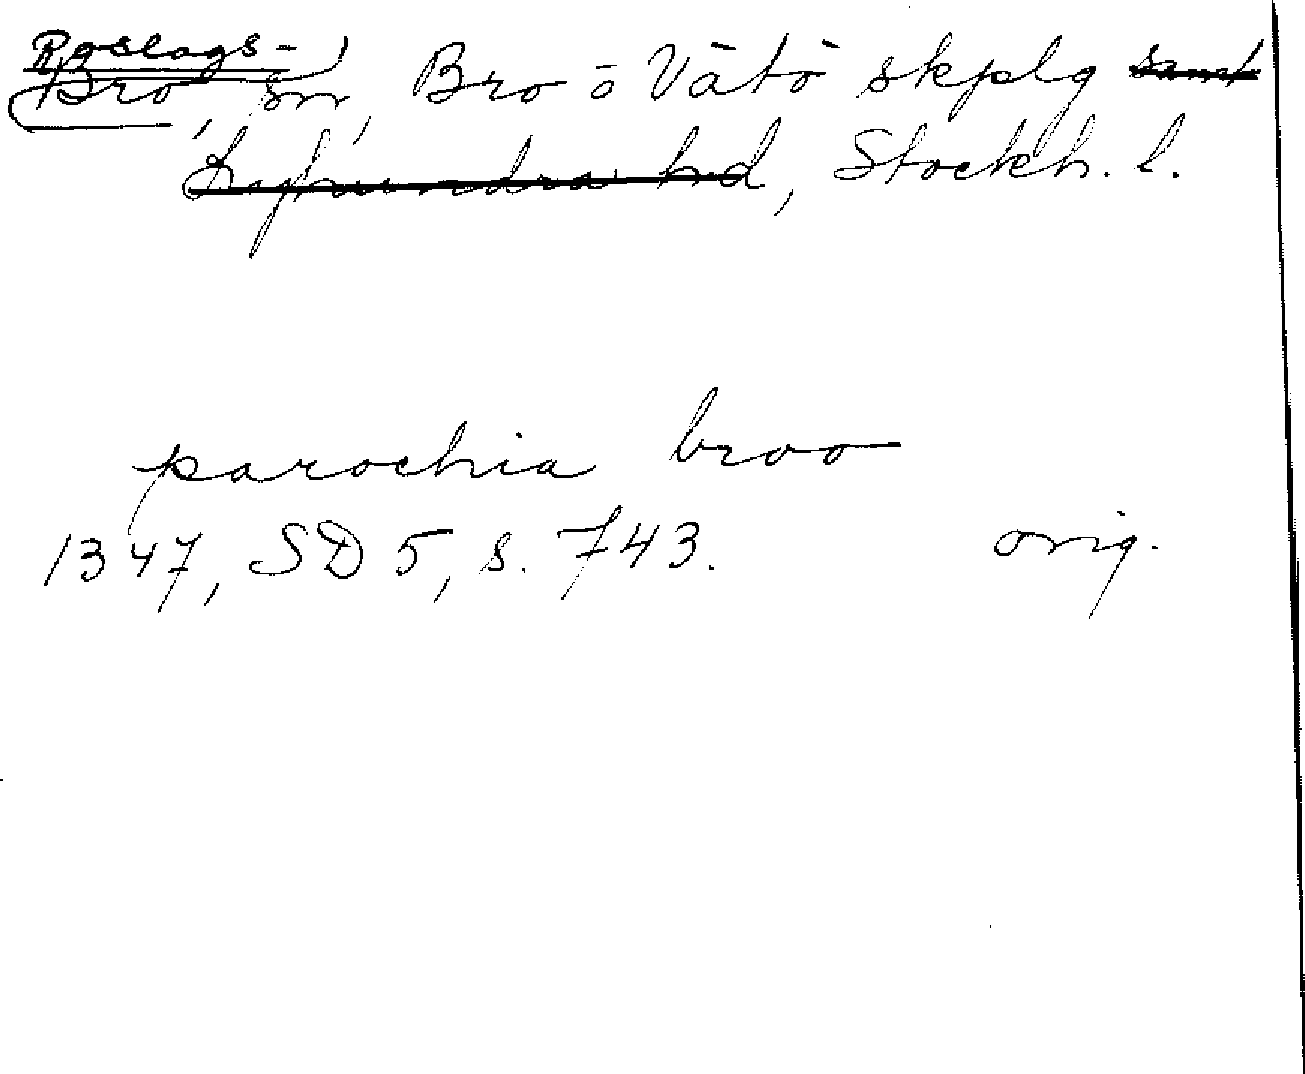 Roslags-
Bro, sn, Bro o Vätö skplg samt
Lyhundra hd, Stockh. l.
parochia broo
1347, SD 5, s. 743. orig.